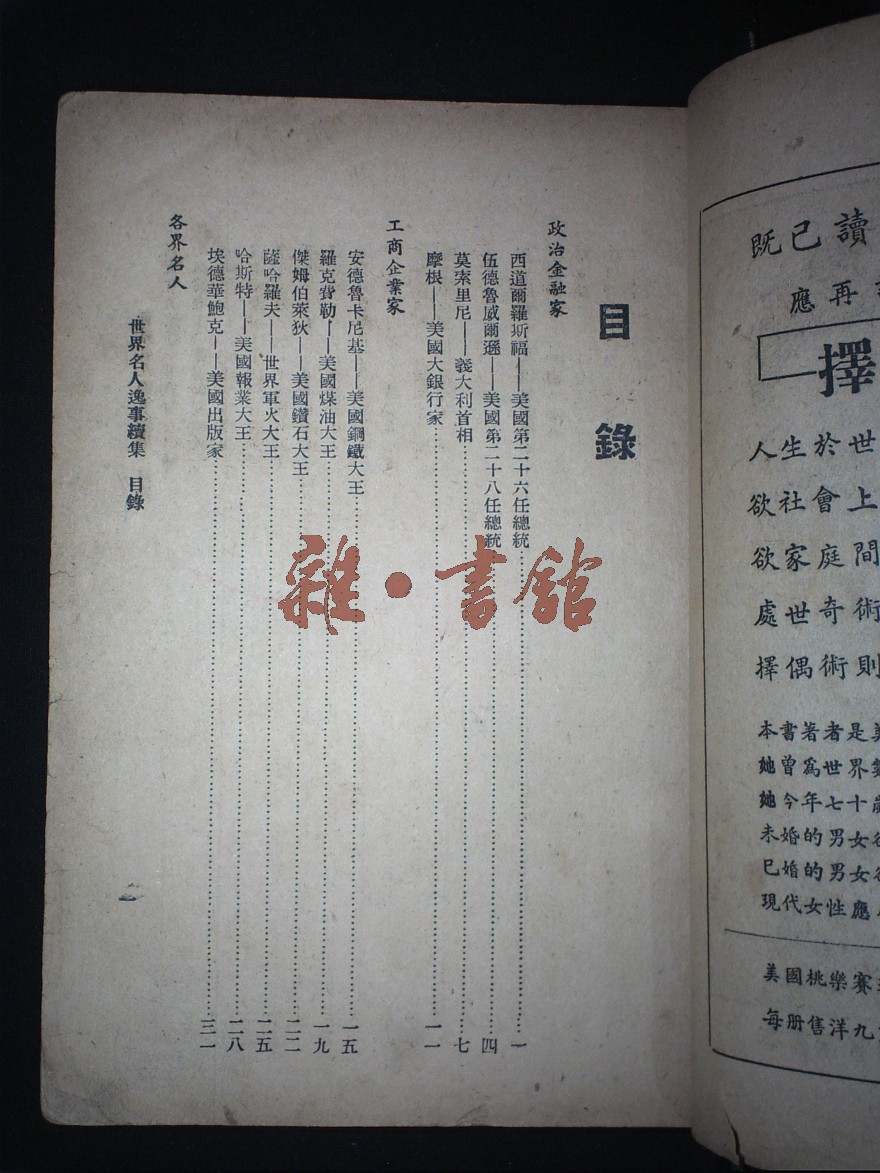 目錄
政治金融家
西道爾羅斯福——美國第二十六任總統……一
伍德魯威爾遜——美國第二十八任總統……四
莫索里尼——義大利首相……七
摩根——美國大銀行家……一一
工商企業家
安德魯卡尼基——美國鋼鐵大王……一五
羅克費勒——美國煤油大王……一九
傑姆伯萊狄——美國鑽石大王……二二
薩哈羅夫——世界軍火大王……二五
哈斯特——美國報業大王……二八
埃德華鮑克——美國出版家……三一
各界名人
世界名人逸事續集 目錄
一
雜·書舘
既已讀
應再
擇
人生於世
欲社會上
欲家庭間
處世奇術
擇偶術則
本書著者是美
她曾爲世界
她今年七十歲
未婚的男女
已婚的男女
現代女性應
美國桃樂賽
每册售洋九